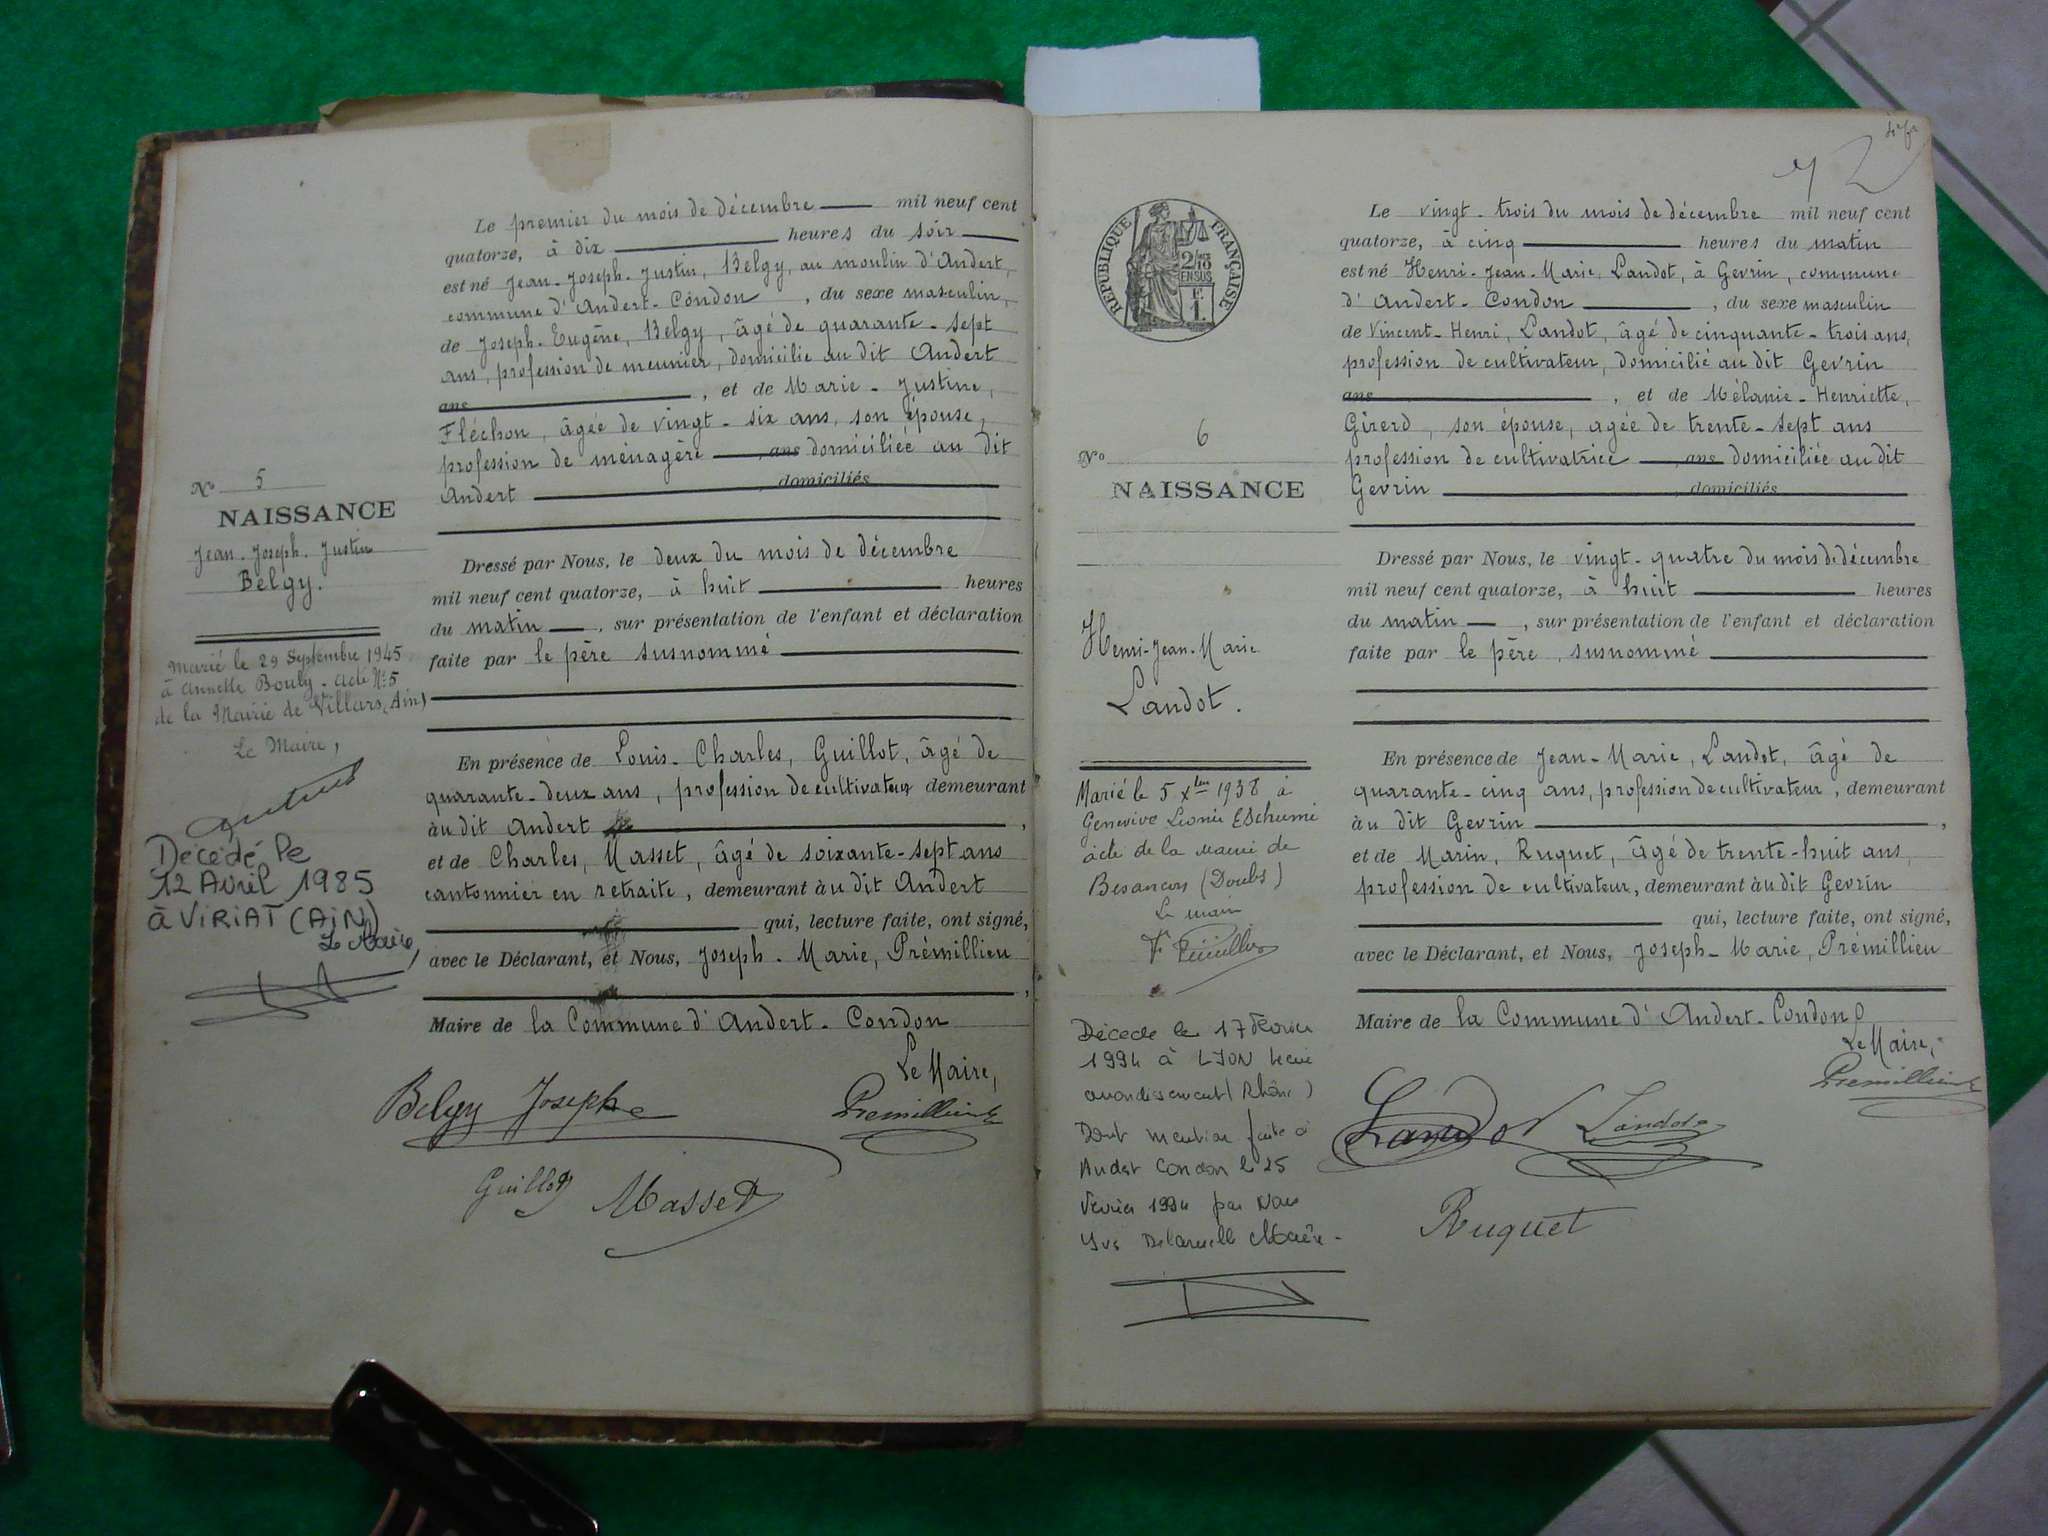 Le premier du mois de décembre mil neuf cent
quatorze, à dix heures du soir
est né Jean-Joseph-Justin, Belgy, au moulin d'Andert,
commune d'Andert-Condon, du sexe masculin,
de Joseph-Eugène, Belgy, âgé de quarante-sept
ans, profession de meunier, domicilié au dit Andert
ans, et de Marie-Justine,
Fléchon, âgée de vingt-six ans, son épouse,
profession de ménagère, ans domiciliée au dit
Andert domiciliés
Nº 5
NAISSANCE
Jean-Joseph-Justin
Belgy.
Marié le 29 Septembre 1945
à Annette Bouly - acte Nº 5
de la Mairie de Villars (Ain)
Le Maire,
Décédé le
12 Avril 1985
à VIRIAT (AIN)
Le Maire,
Dressé par Nous, le deux du mois de décembre
mil neuf cent quatorze, à huit heures
du matin, sur présentation de l'enfant et déclaration
faite par le père susnommé
En présence de Louis-Charles, Guillot, âgé de
quarante-deux ans, profession de cultivateur demeurant
au dit Andert,
et de Charles, Masset, âgé de soixante-sept ans
cantonnier en retraite, demeurant au dit Andert
qui, lecture faite, ont signé,
avec le Déclarant, et Nous, Joseph-Marie, Prémillieu
Maire de la Commune d'Andert-Condon
Le Maire,
Belgy Joseph Premillieu
Guillot Masset
72
RÉPUBLIQUE FRANÇAISE
2/10
EN SUS
F.
1.
Nº 6
NAISSANCE
Henri-Jean-Marie
Landot.
Marié le 5 Xbre 1938 à
Genevive Léonie
acte de la mairie de
Besançon (Doubs)
Le maire
Décédé le 17 Février
1994 à LYON
arrondissement (Rhône)
Dont mention faite à
Andert Condon le 25
Février 1994 par Nous
Yves Delaruelle Maire -
Le vingt-trois du mois de décembre mil neuf cent
quatorze, à cinq heures du matin
est né Henri-Jean-Marie, Landot, à Gevrin, commune
d'Andert-Condon, du sexe masculin
de Vincent-Henri, Landot, âgé de cinquante-trois ans,
profession de cultivateur, domicilié au dit Gevrin
ans, et de Mélanie-Henriette,
Girerd, son épouse, agée de trente-sept ans
profession de cultivatrice, ans domiciliée au dit
Gevrin domiciliés
Dressé par Nous, le vingt-quatre du mois de décembre
mil neuf cent quatorze, à huit heures
du matin, sur présentation de l'enfant et déclaration
faite par le père, susnommé
En présence de Jean-Marie, Landot, âgé de
quarante-cinq ans, profession de cultivateur, demeurant
au dit Gevrin,
et de Marin, Ruguet, âgé de trente-huit ans,
profession de cultivateur, demeurant au dit Gevrin
qui, lecture faite, ont signé,
avec le Déclarant, et Nous, Joseph-Marie, Prémillieu
Maire de la Commune d'Andert-Condon
Le Maire,
Premillieu
Landot Landot
Ruguet